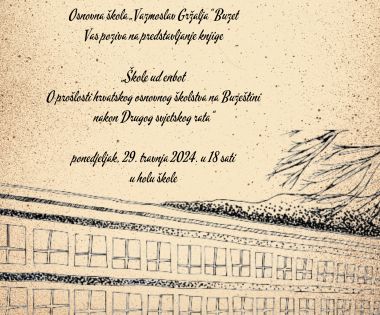 Osnovna škola „Vazmoslav Gržalja" Buzet
Vas poziva na predstavljanje knjige
„Škole ud enbot
O prošlosti hrvatskog osnovnog školstva na Buzeštini
nakon Drugog svjetskog rata"
ponedjeljak, 29. travnja 2024. u 18 sati
u holu škole